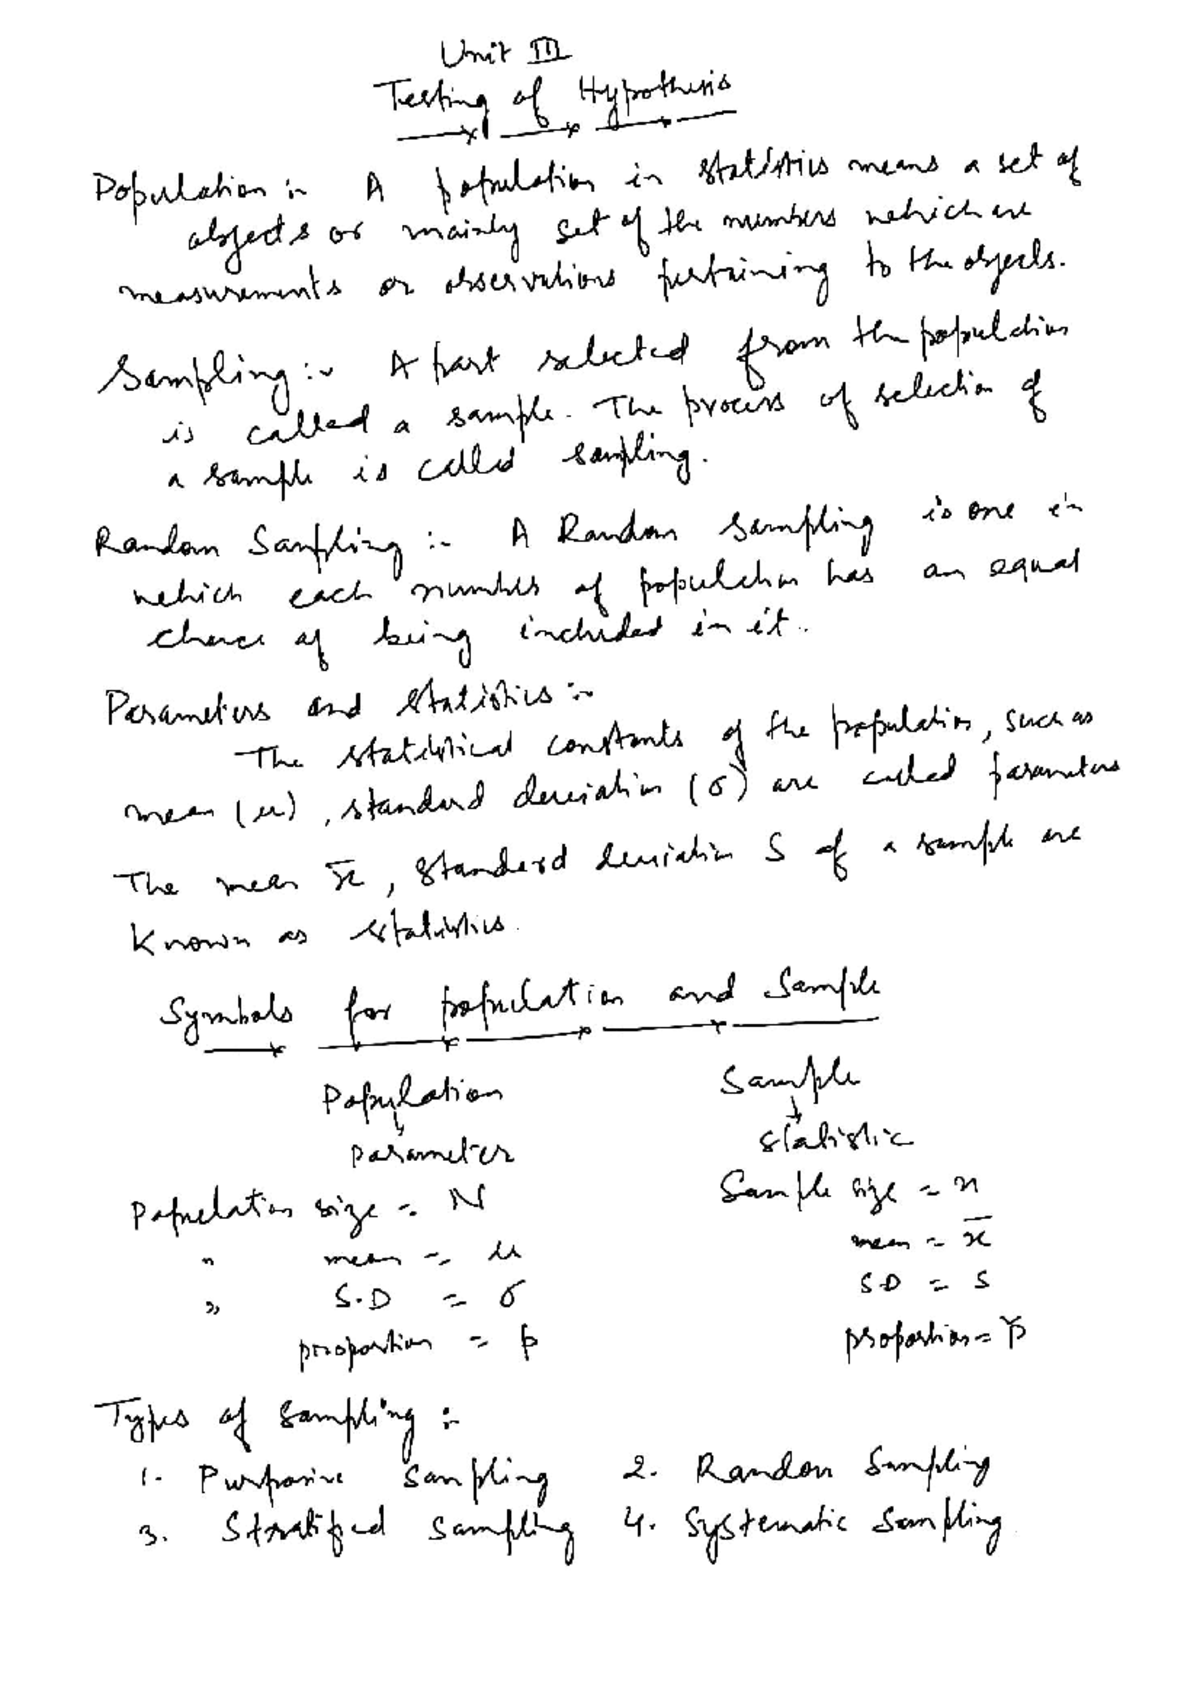 Unit III
Testing of Hypothesis
Population :- A population in statistics means a set of
objects or mainly set of the numbers which are
measurements or observations pertaining to the objects.
Sampling :- A part selected from the population
is called a sample. The process of selection of
a sample is called sampling.
Random Sampling :- A Random sampling is one in
which each number of population has an equal
chance of being included in it.
Parameters and statistics :-
The statistical constants of the population, such as
mean (μ), standard deviation (σ) are called parameters
The mean x̄, standard deviation S of a sample are
Known as statistics.
Symbols for population and Sample
Population Sample
↓ ↓
parameter statistic
Population size = N Sample size = n
" mean = μ mean = x̄
" S.D = σ S.D = s
proportion = p proportion = p̌
Types of sampling :-
1. Purposive Sampling 2. Random Sampling
3. Stratified Sampling 4. Systematic Sampling